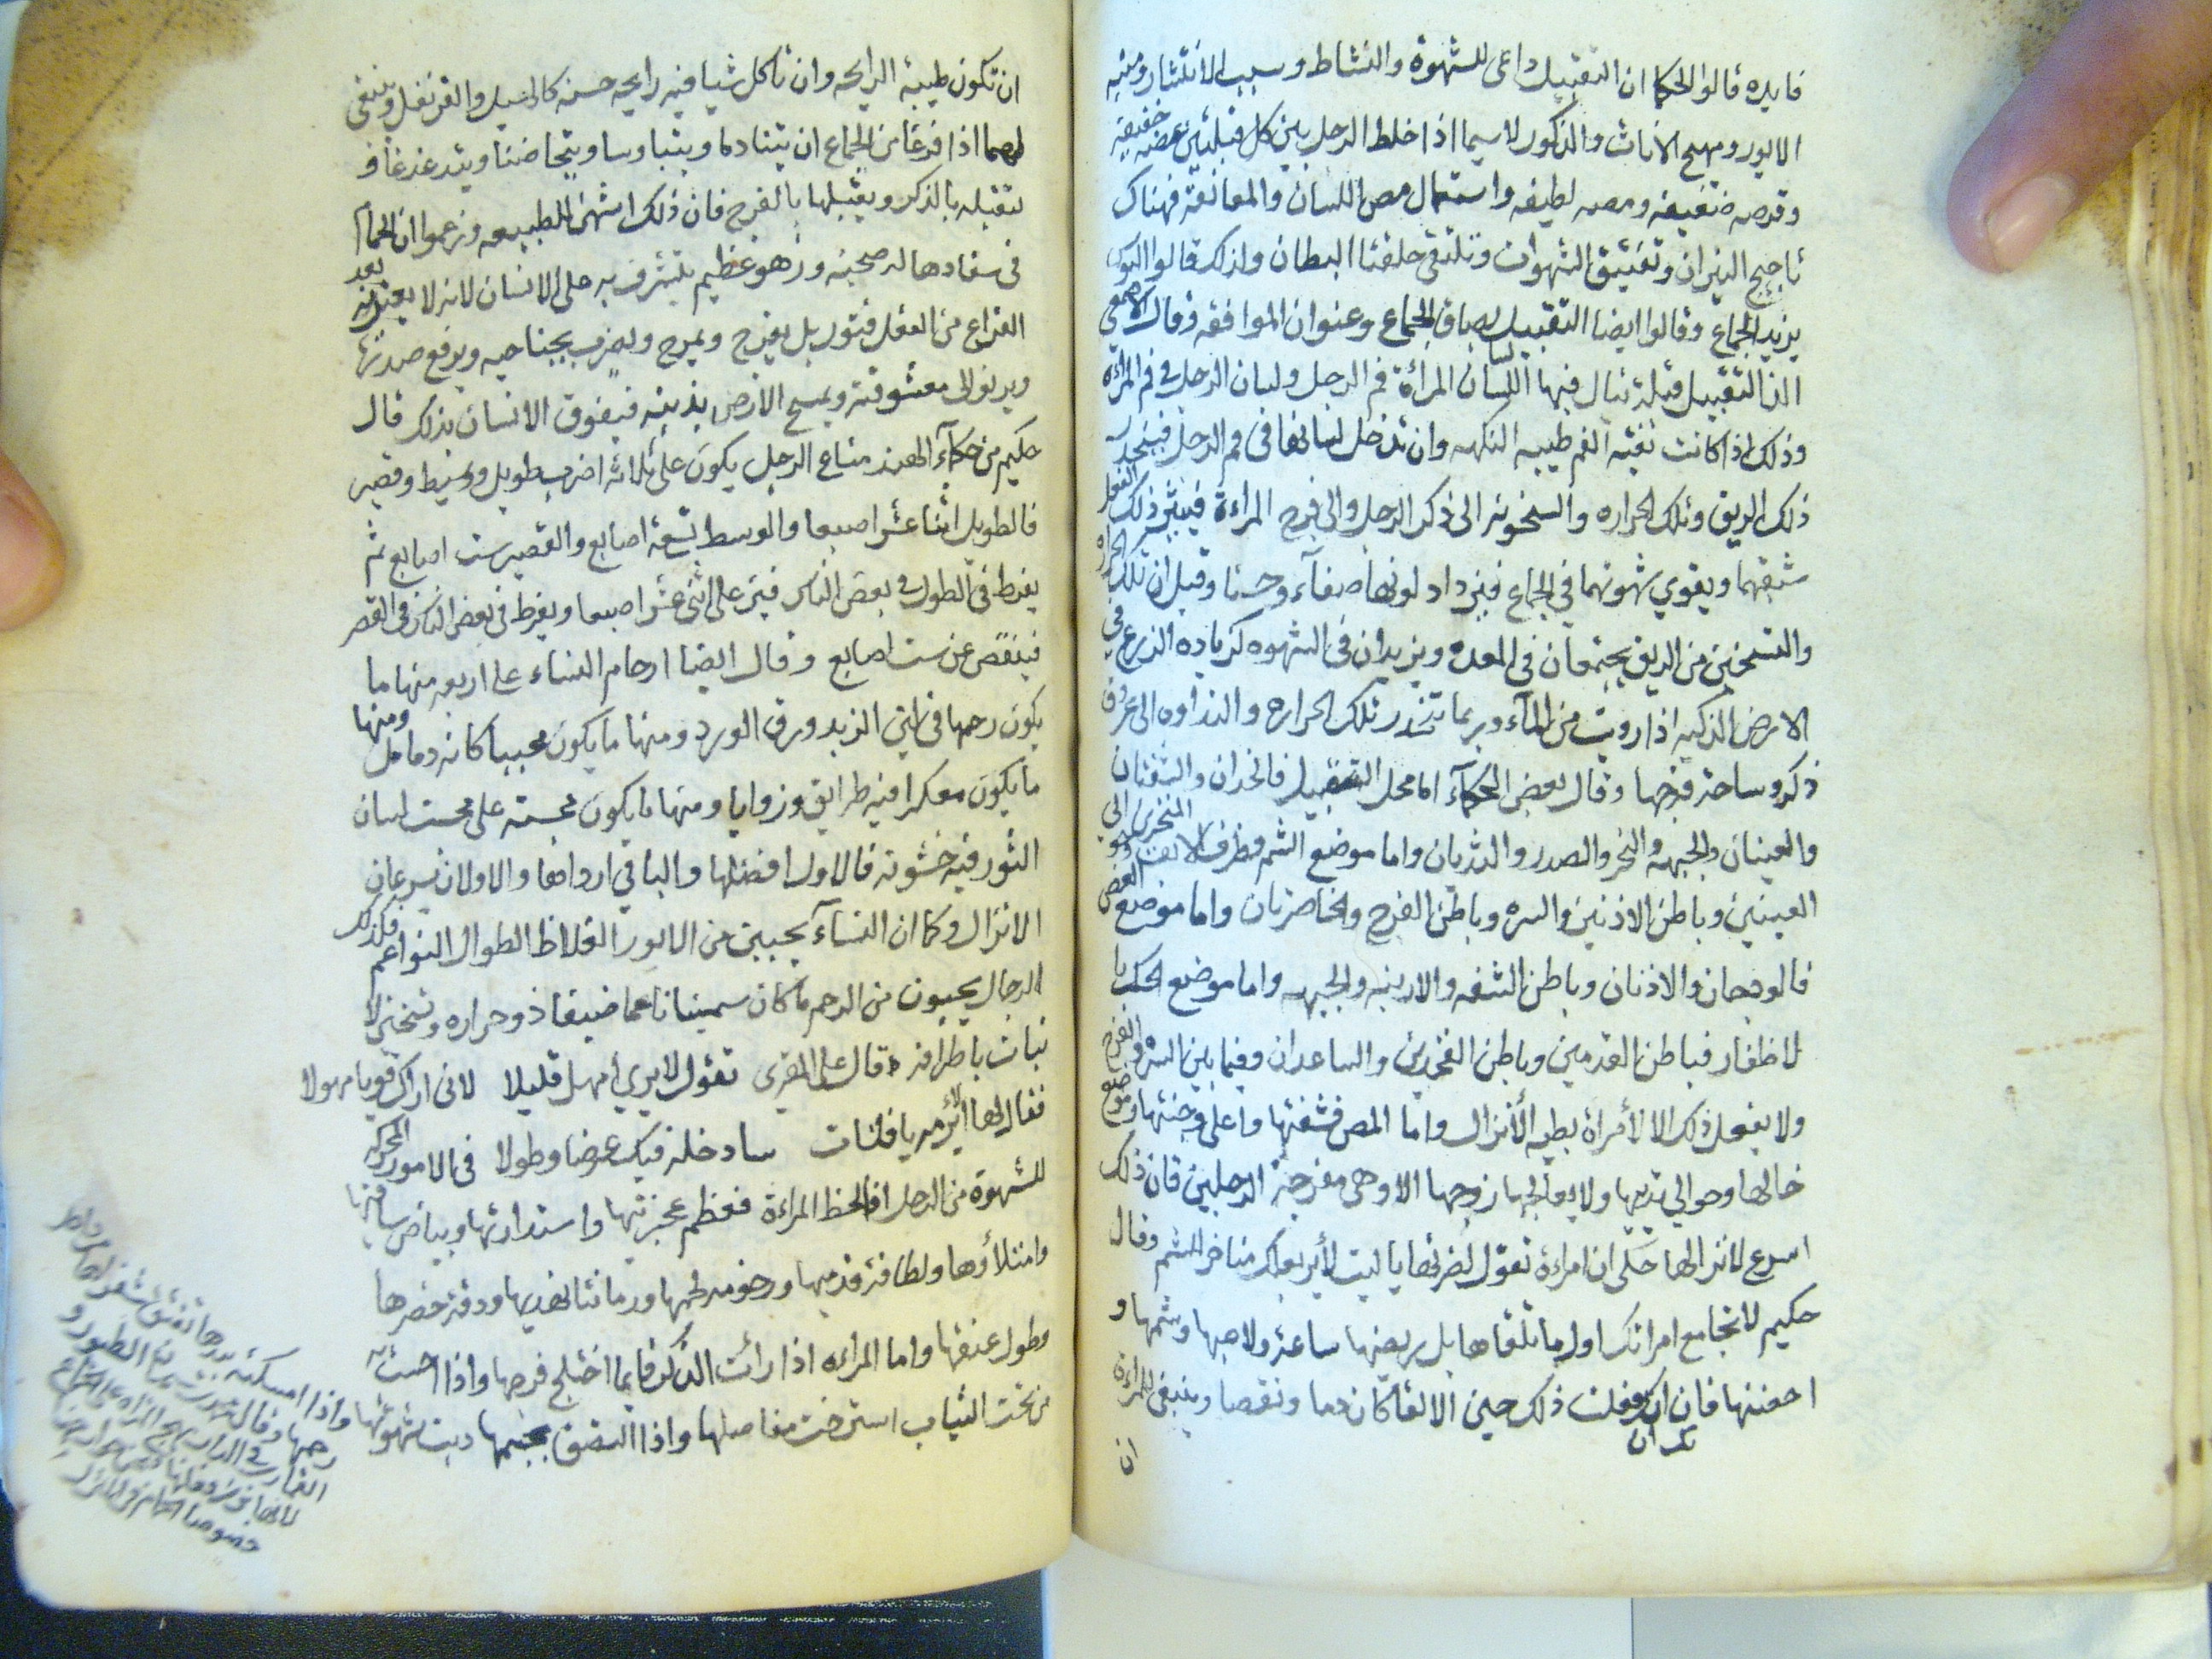 فايده قالوا الحكما ان التقبيل داعى للشهوة والنشاط وسبب الانتشار ومنبه
الايور ومهيج الاناث والذكور لا سيما اذا خلط الرجل بين كل قبلتين عضه خفيفه
وقرصه ضعيفه ومصه لطيفه واستعمال مص اللسان والمعانقة فهناك
تاجيج النيران وتفتيق الشهوات وتلتقى حلقتا البطان ولذلك قالوا البوس
يزيد الجماع وقالوا ايضا التقبيل بصاق الجماع وعنوان الموافقه وقال الاصمعي
الذ التقبيل قبلة ينال فيها لسان المرأة فم الرجل ولسان الرجل في فم المرأة
وذلك اذا كانت نقية الفم طيبه النكهه وان تدخل لسانها فى فم الرجل فينحدر
ذلك الريق وتلك الحراره والسخونه الى ذكر الرجل والى فرج المراءة فيثير ذلك الفعل
شبقهما ويقوي شهوتهما في الجماع فيزداد لونها صفآء وحسنا وقيل ان تلك الحراره
والتسخين من الريق يجتمعان في المعده ويزيدان فى الشهوه كزياده الزرع في
الارض الذكيه اذا رويت من المآء وربما تنحدر تلك الحراره والنداوه الى عروق
ذكره وساحة فرجها وقال بعض الحكمآء اما محل التقبيل فالخدان والشفتان
والعينان والجبهه والنحر والصدر والثديان واما موضع الشم فطرف الانف المنخرين الى نحو
العينين وباطن الاذنين والسره وباطن الفرج والخاصرتان واما موضع العض
فالوجهان والاذنان وباطن الشفه والارنبه والجبهه واما موضع الحك با
لاظفار فباطن القدمين وباطن الفخذين والساعدان وفيما بين السره والفرج
ولا يفعل ذلك الا لأمراة بطيه الأنزال واما المص فشفتها واعلى وجنتها وموضع
خالها وحوالي ثديها ولا يعالجها زوجها الا وهى مفرجة الرجلين فان ذلك
اسرع لانزالها حكى ان امراءة تقول لضرتها يا ليت لأير بعلك مناخر للشم وقال
حكيم لا تجامع امراتك اول ما تلقاها بل بريضها ساعة ولاعبها وشمها و
احضنها فانك ان فعلت ذلك حين الالقا كان وهما ونقصا وينبغى للمراءة
ان
ان تكون طيبة الرايحه وان تاكل شيا فيه رايحه حسنه كالهيل والقرنفل وينبغى
لهما اذا فرغا من الجماع ان يتنادما ويتباوسا ويتحاضنا ويتدغدغا و
تقبله بالذكر ويقبلها بالفرج فان ذلك اشهى للطبيعه وزعموا ان الحمام
فى سفادها له صحبه وزهو عظيم يتشرف به على الانسان لانه لا يعتريه بعد
الفراغ من الفعل فتور بل يفرح ويمرح ويضرب بجناحيه ويرفع صدره
ويدنو الى معشوقته ويمسح الارض بذنبه فيفوق الانسان بذلك قال
حكيم من حكمآء الهند متاع الرجل يكون على ثلاثه اضرب طويل ووسيط وقصير
فالطويل اثنا عشر اصبعا والوسط تسعة اصابع والقصير ست اصابع ثم
يفرط فى الطول في بعض الناس فيزيد على اثنى عشر اصبعا ويفرط فى بعض الناس فى القصر
فينقص عن ست اصابع وقال ايضا ارحام النساء على اربعه منها ما
يكون رحمها فى لين الزبد ورق الورد ومنها ما يكون محببا كانه دمامل ومنها
ما يكون معكرا فيه طرايق وزوايا ومنها ما يكون مجسته على مجست لسان
الثور فيه خشونه فالاول افضلها والباقي ارداها والاولان يسرعان
الانزال وكما ان النسآء يحببن من الايور الغلاظ الطوال النواعم فكذلك
الرجال يحبون من الرحم ما كان سمينا ناعما ضيقا ذو حراره وتسخين لا
نبات باطرافه قال على المقرى تقول لايري أمهل قليلا لانى اراك قويا مهولا
فقال لها الأير مه يا فلانت سادخله فيك عرضا وطولا فى الامور المحركه
للشهوة من الرجل اذا لحظ المراءة فعظم عجيزتها واستدارتها وبياض ساقيها
وامتلاؤها ولطافة قدميها ورخومه لحمها ورمانتا نهديها ودقة خصرها
وطول عنقها واما المراءه اذا رأت الذكر قايما اختلج فرجها واذا احست به
من تحت الثياب استرخت مفاصلها واذا التصق بجسمها دبت شهوتها
واذا امسكته بيدها تفتق شفراها
رحمها وقال
خصوصا الحمام